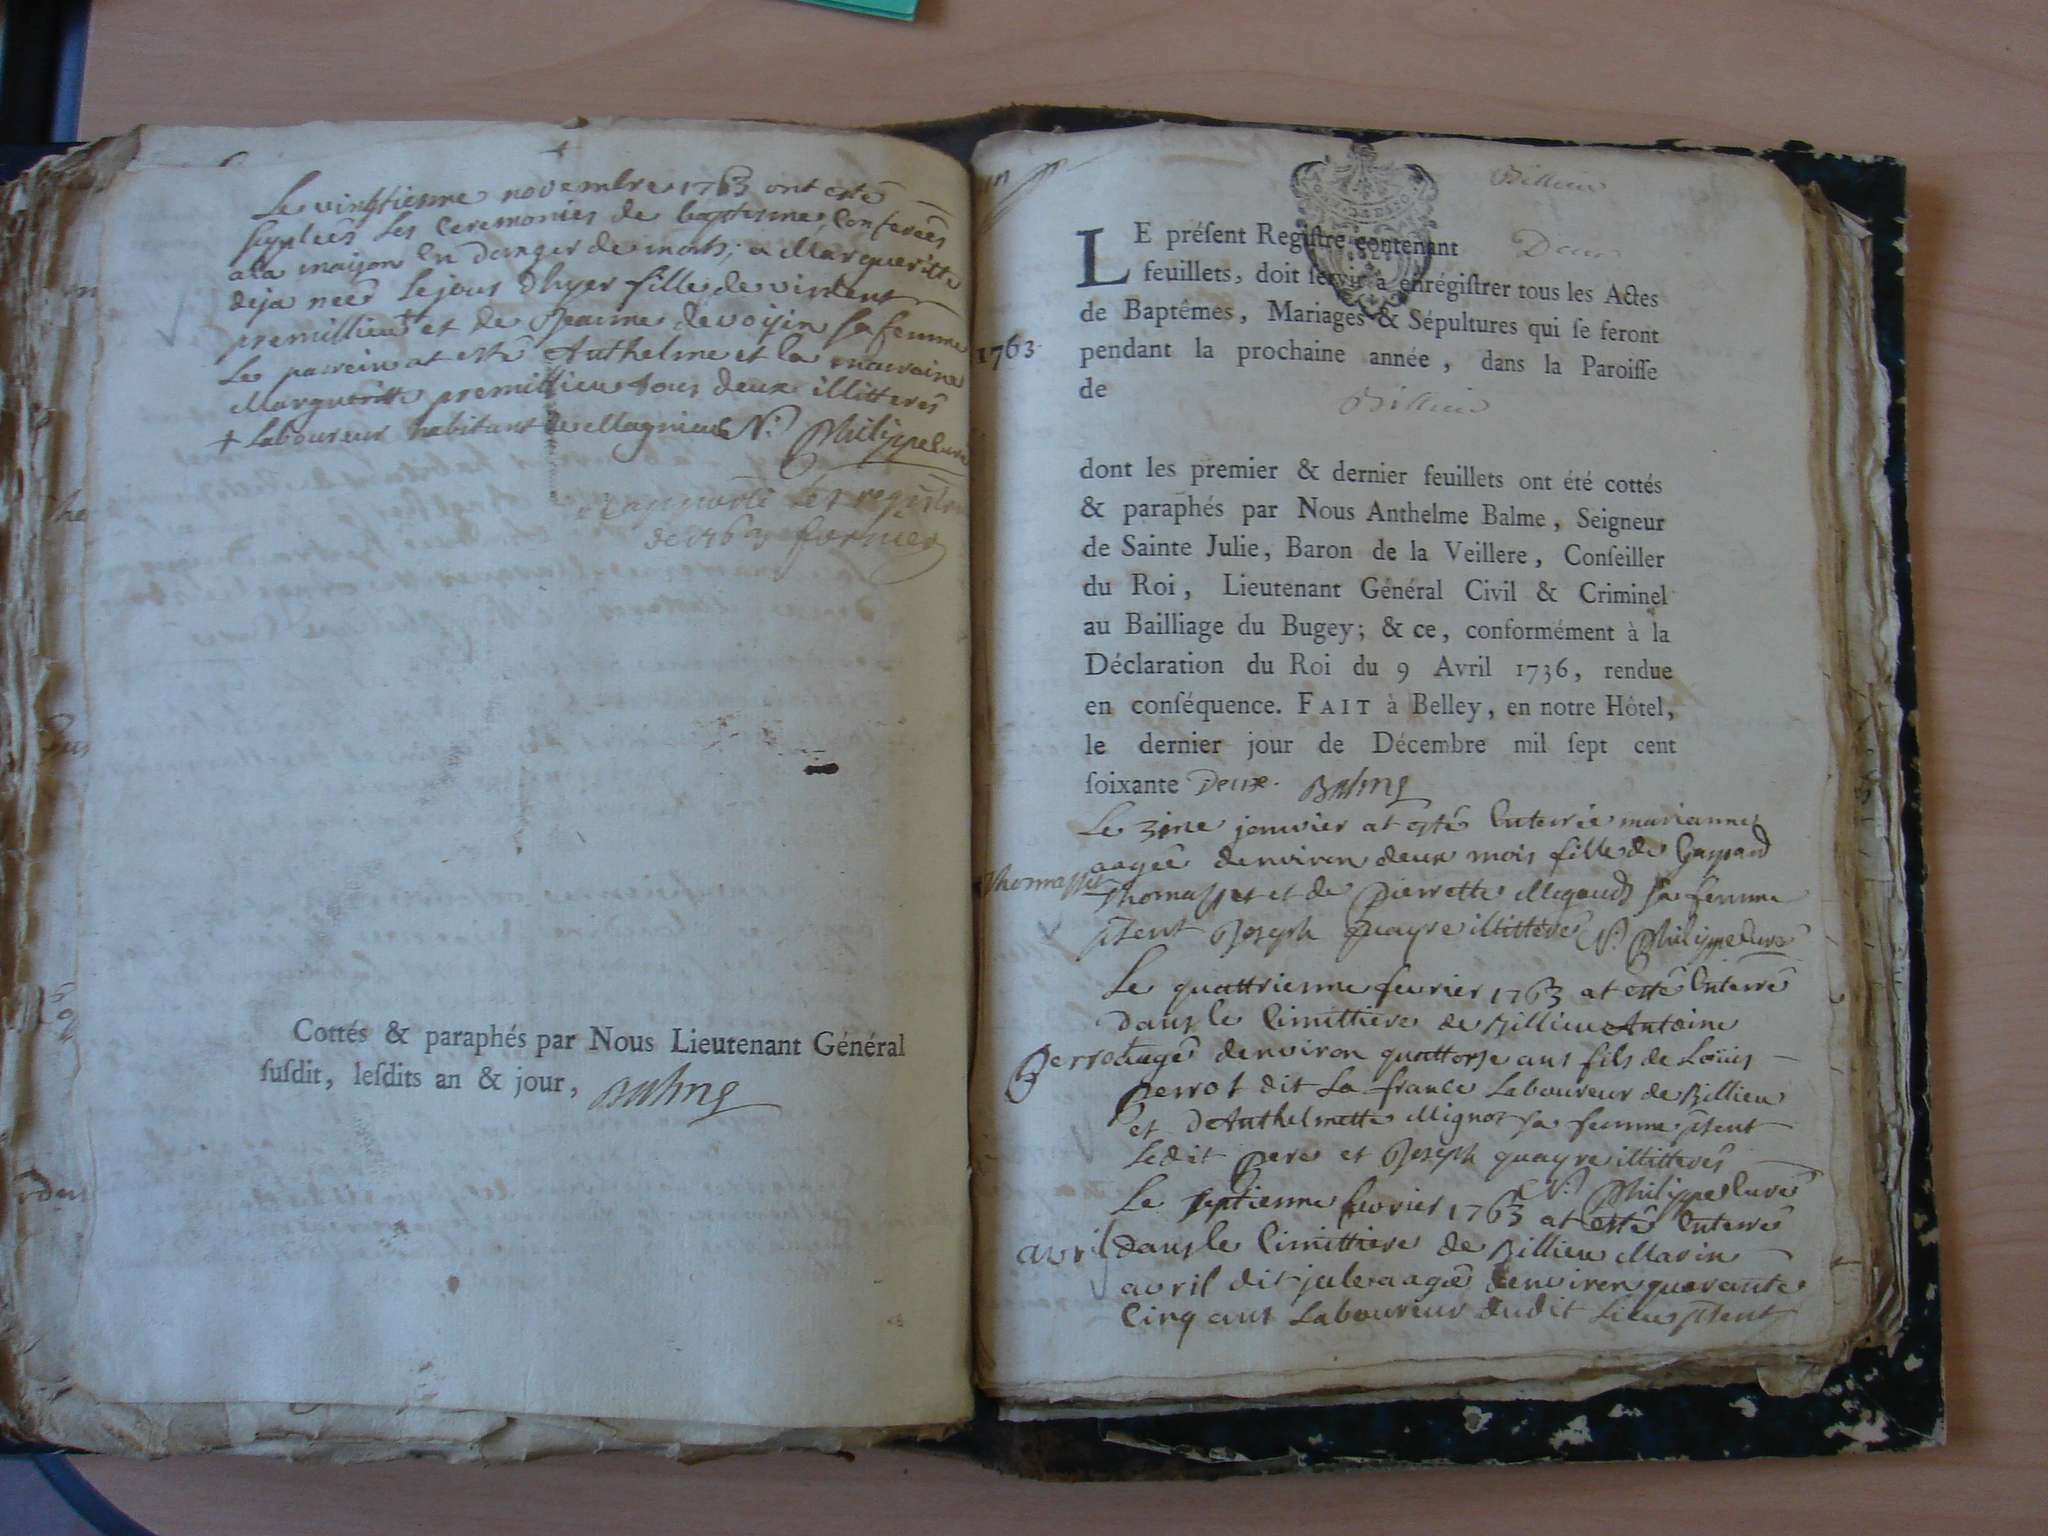 Le vingtiesme novembre 1763 ont esté
supleés les ceremonies de baptesme, conferées
a la maison en danger de mort, a Margueritte
deja neé le jour d'hyer fille de vincent
premillieu + et de Jeanne devoisin sa femme
le parrein at esté Anthelme et la marraine
Margueritte premillieu tous deux illitterés
+ Laboureur habitant de Magnieu N. Philippe curé
apporté les registres
de 1763 fornier
Cottés & paraphés par Nous Lieutenant Général
ſuſdit, leſdits an & jour, Balme
Billieu
LE préſent Regiſtre contenant Deux
feuillets, doit ſervir à enrégiſtrer tous les Actes
de Baptêmes, Mariages & Sépultures qui ſe feront
1763 pendant la prochaine année, dans la Paroiſſe
de Billieu
dont les premier & dernier feuillets ont été cottés
& paraphés par Nous Anthelme Balme, Seigneur
de Sainte Julie, Baron de la Veillere, Conſeiller
du Roi, Lieutenant Général Civil & Criminel
au Bailliage du Bugey; & ce, conformément à la
Déclaration du Roi du 9 Avril 1736, rendue
en conſéquence. FAIT à Belley, en notre Hôtel,
le dernier jour de Décembre mil ſept cent
ſoixante Deux. Balme
Le 3ine janvier at esté enterrée marianne
aagée d'environ deux mois fille de Gaspard
Thomasset
Thomasset et de Pierrette Migaud sa femme
p̃sent Joseph quayre illitteré N. Philippe curé
Le quattriesme fevrier 1763 at esté enterré
dans le cimittiere de Billieu Antoine
Perrot aagé d'environ quattorse ans fils de Loüis
perrot dit La france Laboureur de Billieu
et d'Anthelmette Mignot sa femme p̃sent
Ledit pere et Joseph quayre illitterés
N. Philippe curé
Le septiesme fevrier 1763 at esté enterré
avril dans le cimittiere de Billieu Marin
avril dit jule aagé d'environ quarante
cinq ans Laboureur dudit Lieu p̃sent